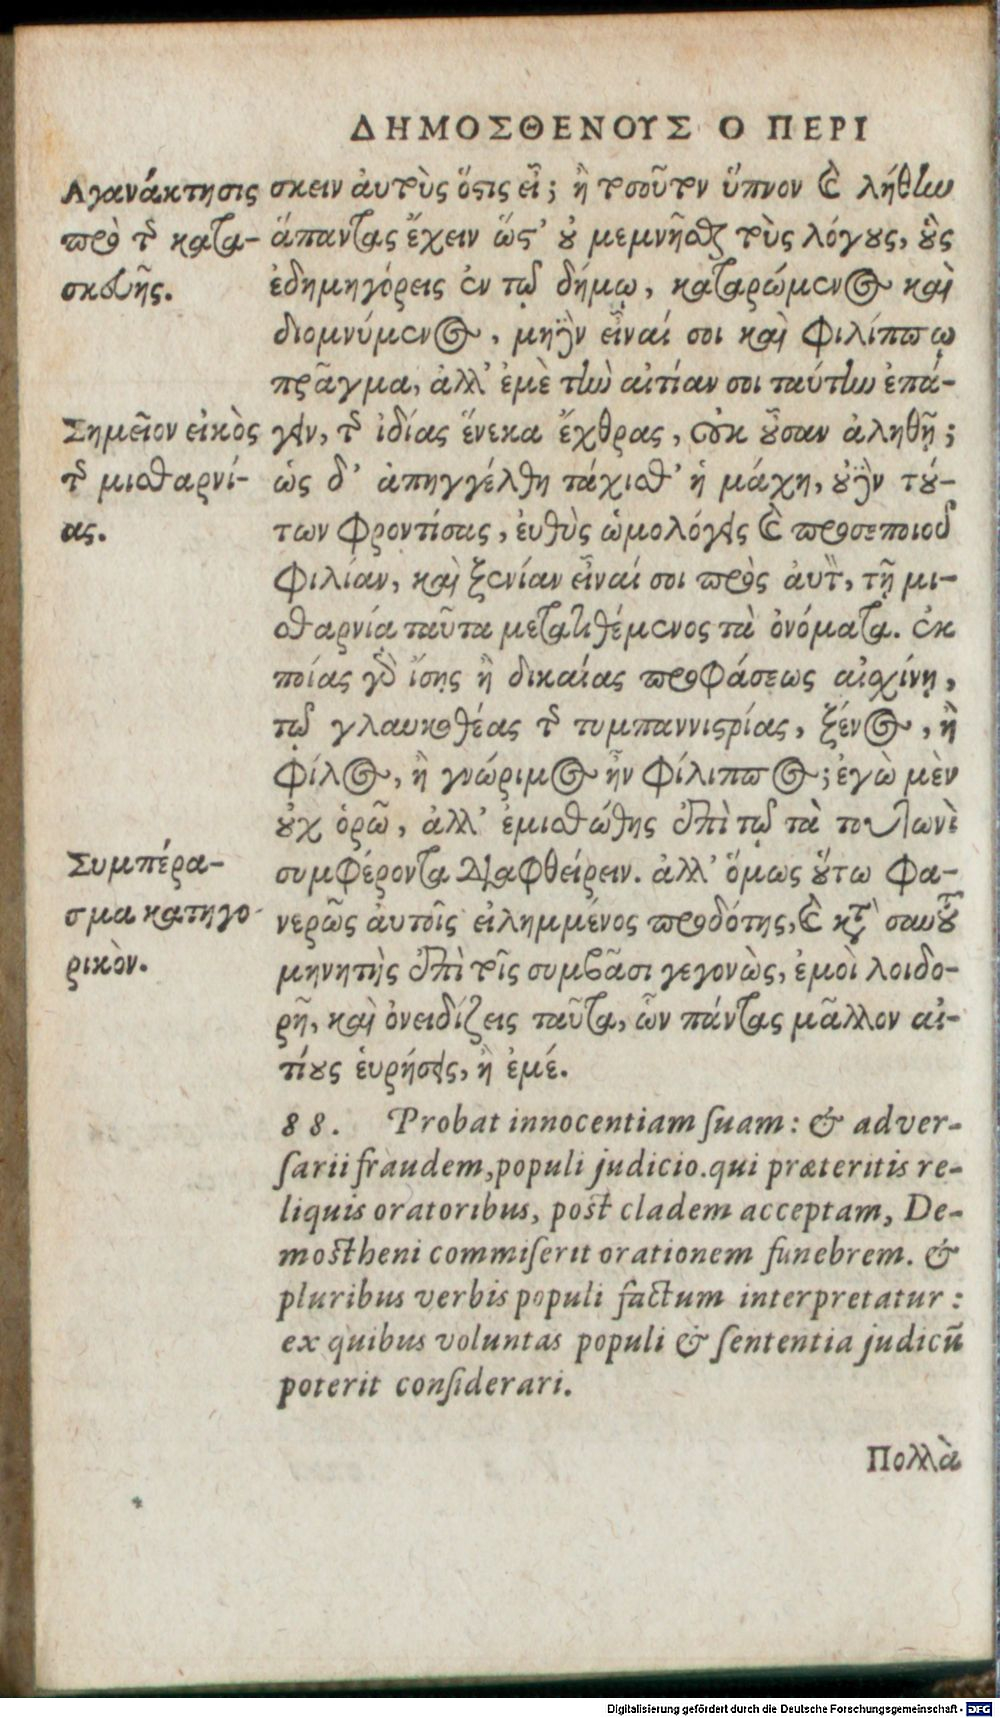 ΔΗΜΟΣΘΕΝΟΥΣ Ο ΠΕΡΙ
Αγανάκτησις
πρὸ τῆς κατα-
σκευῆς.
σκειν αὐτοὺς ὅστις εἶ; ἢ τοσοῦτον ὕπνον καὶ λήθην
ἅπαντας ἔχειν ὥστ' οὐ μεμνῆσθαι τοὺς λόγους, οὓς
ἐδημηγόρεις ἐν τῷ δήμῳ, καταρώμενος καὶ
διομνύμενος, μηδὲν εἶναί σοι καὶ Φιλίππῳ
πρᾶγμα, ἀλλ' ἐμὲ τὴν αἰτίαν σοι ταύτην ἐπά-
Σημεῖον εἰκὸς
τῆς μισθαρνί-
ας.
γειν, τῆς ἰδίας ἕνεκα ἔχθρας, οὐκ οὖσαν ἀληθῆ;
ὡς δ' ἀπηγγέλθη τάχισθ' ἡ μάχη, οὐδὲν τού-
των φροντίσας, εὐθὺς ὡμολόγεις καὶ προσεποιοῦ
φιλίαν, καὶ ξενίαν εἶναί σοι πρὸς αὐτὸν, τῇ μι-
σθαρνίᾳ ταῦτα μετατιθέμενος τὰ ὀνόματα. ἐκ
ποίας γὰρ ἴσης ἢ δικαίας προφάσεως αἰσχίνῃ,
τῷ γλαυκοθέας τῆς τυμπαννιστρίας, ξένος, ἢ
φίλος, ἢ γνώριμος ἦν Φίλιππος; ἐγὼ μὲν
οὐχ ὁρῶ, ἀλλ' ἐμισθώθης ἐπὶ τῷ τὰ τουτωνὶ
Συμπέρα-
σμα κατηγο-
ρικὸν.
συμφέροντα διαφθείρειν. ἀλλ' ὅμως οὕτω φα-
νερῶς αὐτοῖς εἰλημμένος προδότης, καὶ κατὰ σαυτοῦ
μηνητὴς ἐπὶ τοῖς συμβᾶσι γεγονὼς, ἐμοὶ λοιδο-
ρῇ, καὶ ὀνειδίζεις ταῦτα, ὧν πάντας μᾶλλον αἰ-
τίους εὑρήσεις, ἢ ἐμέ.
88. Probat innocentiam ſuam: & adver-
ſarii fraudem, populi judicio. qui præteritis re-
liquis oratoribus, post cladem acceptam, De-
mostheni commiſerit orationem funebrem. &
pluribus verbis populi factum interpretatur:
ex quibus voluntas populi & ſententia judicū
poterit conſiderari.
Πολλὰ
Digitalisierung gefördert durch die Deutsche Forschungsgemeinschaft - DFG